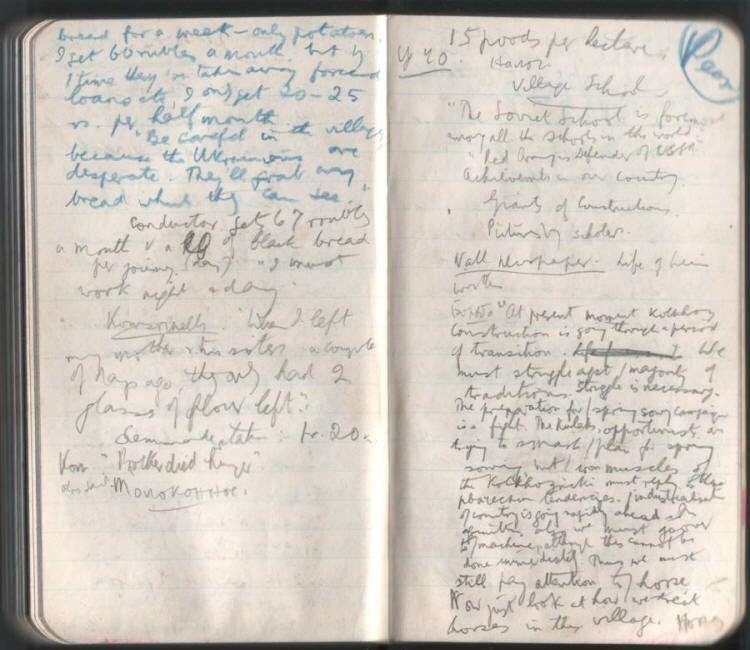 bread for a week – only potatoes.
I get 60 roubles a month but by
time they've taken away forced
loans etc, I only get 20–25
rs. per half month.
"Be careful in the village
because the Ukrainians are
desperate. They'll grab any
bread which they can see."
Conductor gets 67 roubles
a month & a of black bread
per journey (day). "I must
work night & day.
When I left
my mother & two sisters a couple
of days ago, they only had 2
glasses of flour left".
20
"Brother died hunger".
15 poods per hectare
Village School
"The Soviet School is foremost
among all the schools in the world"
"Red Army is Defender of USSR
Achievements in our country.
Giants of Construction.
Pictures by scholars.
Wall newspaper. Life of Lenin
"At present moment Kolkhoz
construction is going through a period
of transition. We
must struggle agst majority of
traditions. Struggle is necessary.
The preparation for spring sowing campaign
is a fight. The Kulaks, opportunists are
trying to smash plan for spring
sowing, but iron muscles of
the Kolkhozniki must reply to these
tendencies. Industrialisation
of country is going rapidly ahead
also we must go over
to machine, although this cannot be
done immediately. Thus we must
still pay attention to horse
Now just look at how we treat
horses in this village.